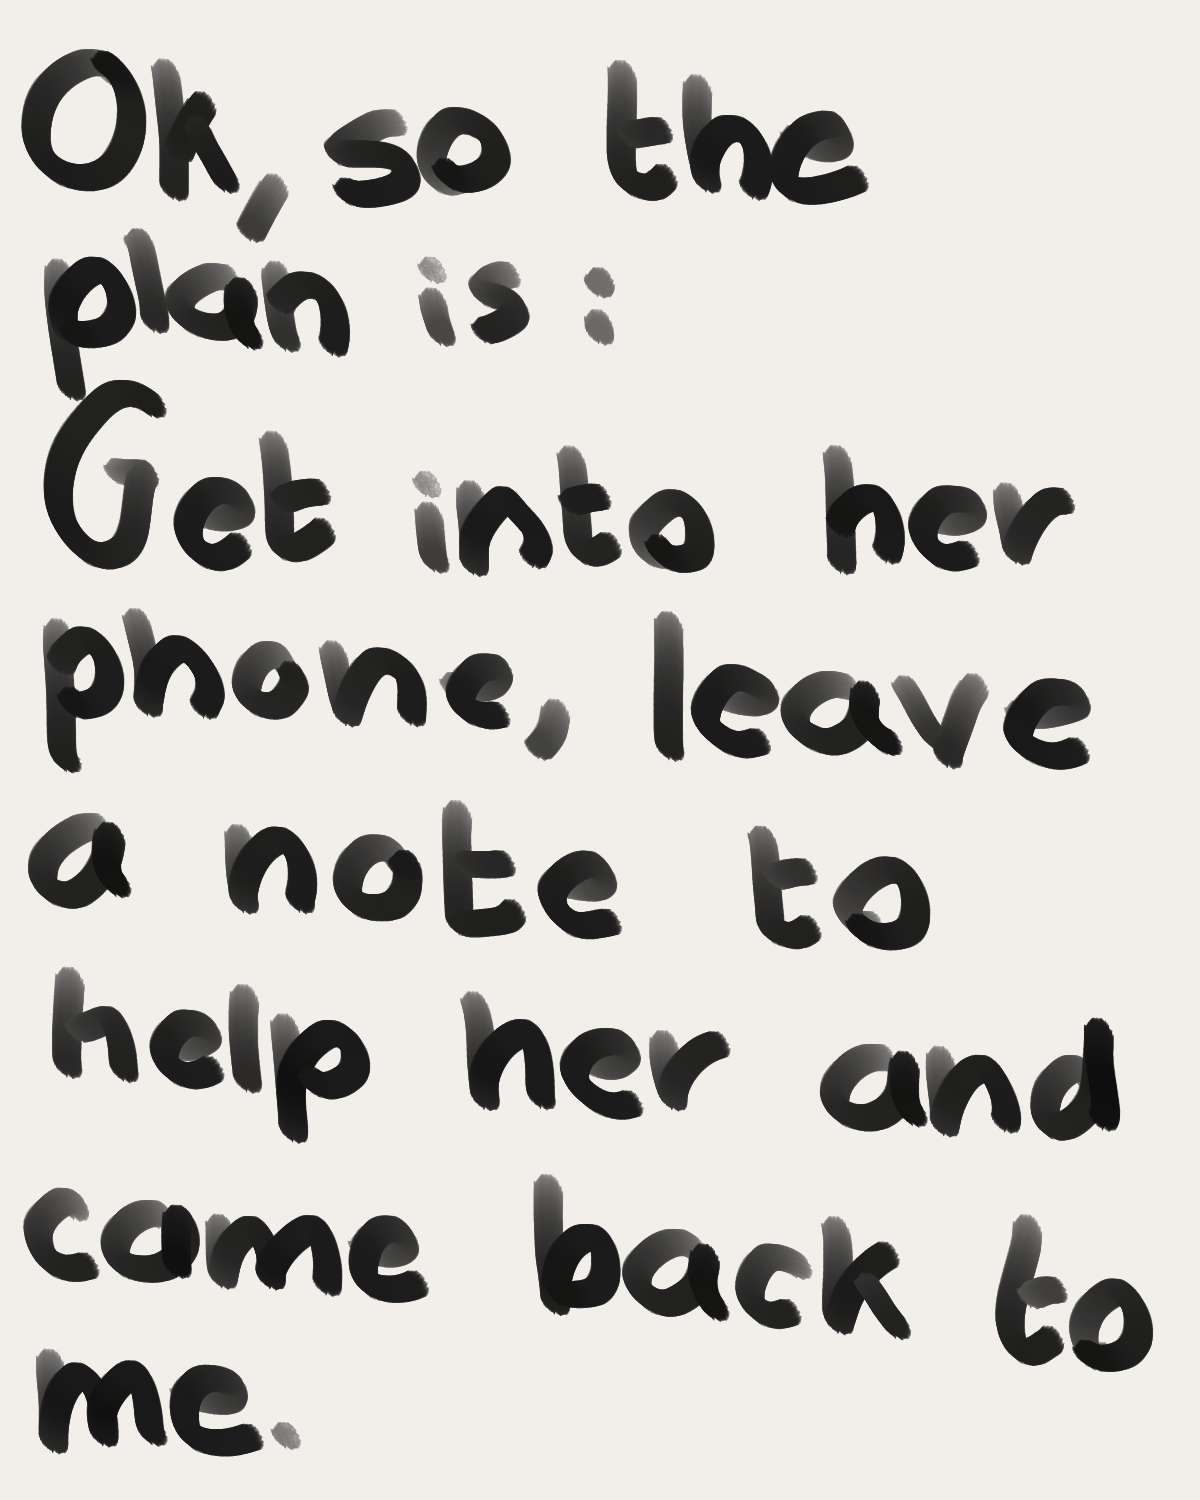 Ok, so the
plan is :
Get into her
phone, leave
a note to
help her and
came back to
me.